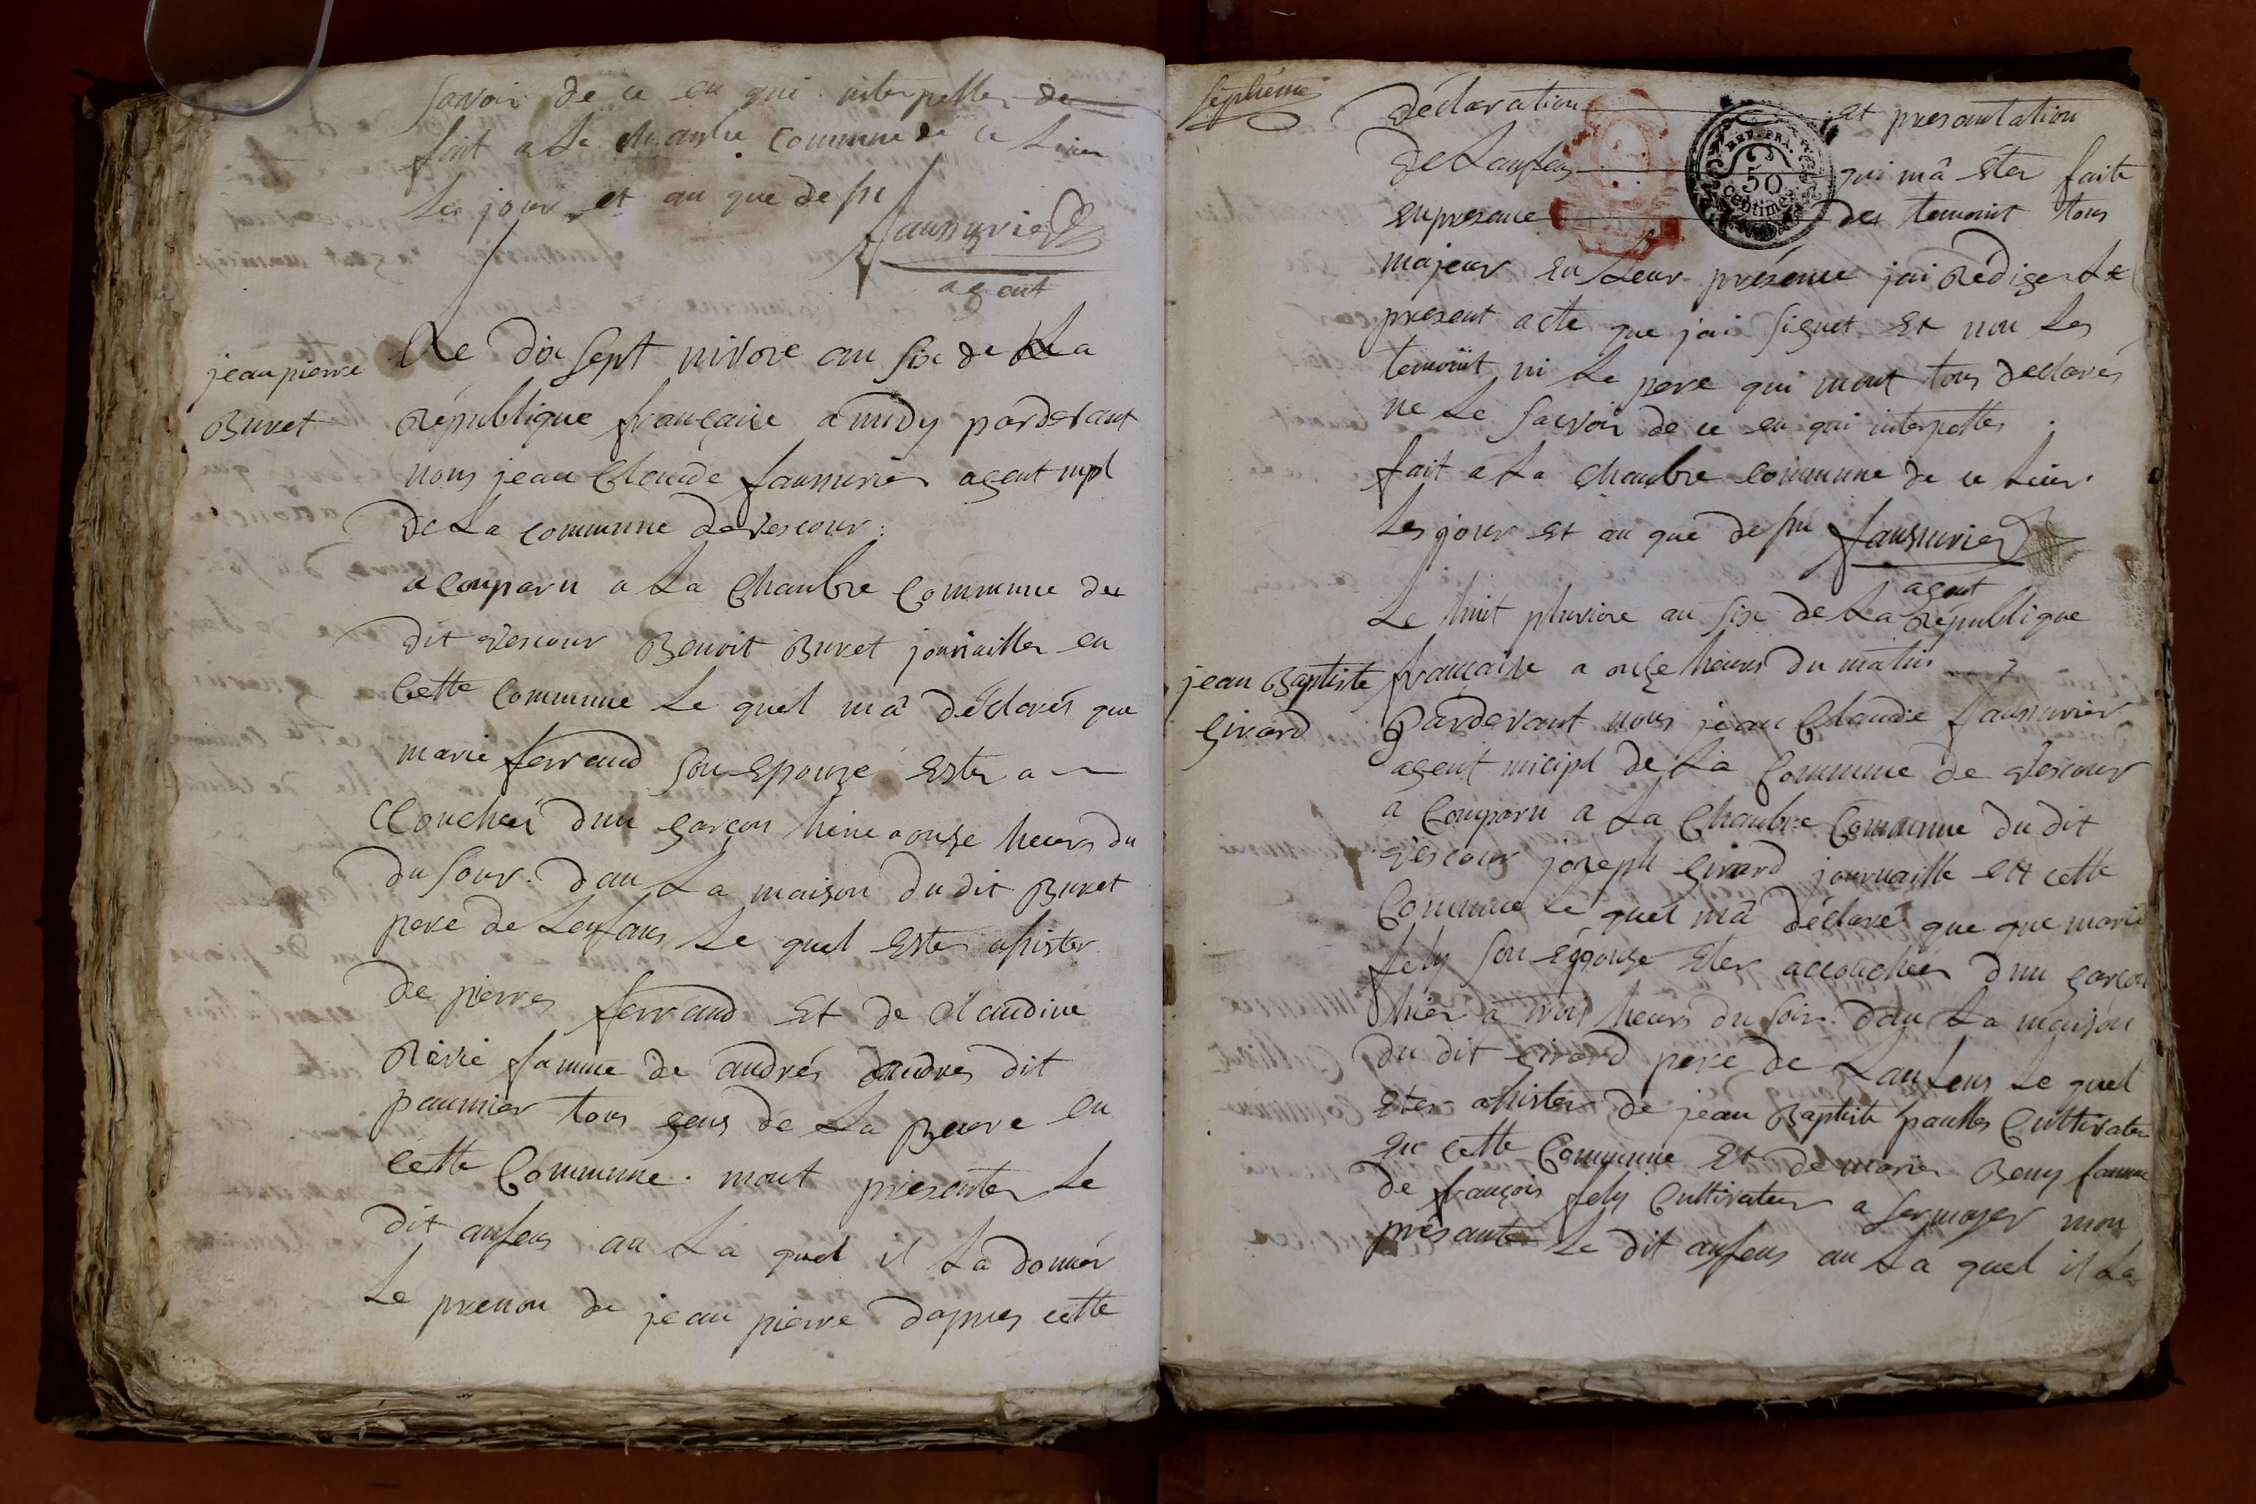 savoir de ce en qui interpeller de
fait a La chambre Commune de ce Lieu
Les jour et an que desu
faussurier
agent
jean pierre
Buret
Le dix sept nivose an six de La
République française a midy pardevant
nous jean Claude faussurier agent mpl
De La commune de vescour
a Comparu a La Chambre Commune du
dit vescour Benoit Buret journallier en
Cette Commune Le quel mâ déclarés que
marie ferraud son Epouze Ester a
Couchéé dun garçon hier a onze heurs du
du soir. dan La maison du dit Buret
pere de Lenfans Le quel Ester assister
de pierres ferraud Et de Claudine
famme de andrés dandres dit
paumier tous gens de La en
cette Commune. mont presenter Le
dit anfens au La quel il Lâ donnér
Le prenon de jean pierre dapres cette
septiéme
déclaration et presantation
de Lanfens qui mâ éter faite
en presence des temoint tous
REP. FRA.
50
Centimes
majeur En Leur présence jai Rediger Le
present acte que jai signet Et non Les
temoint ni Le pere qui mont tous declarés
ne Le sacvoir de ce en qui interpelles
fait a La Chambre commune de ce Lieu
Les jour Et an que desu faussurier
agent
Le huit pluviose an six de La République
jean Baptiste
Girard
française a onze heurs du matin
Pardevant nous jean Claude faussurier
agent nicipl de La Commune de vescour
a Comparu a La Chambre Commune du dit
vescour jozeph Girard journaille en cette
Commune Le quel mâ déclaré que que marie
fely son Epouze Eter accouchéér dun garcon
hier a trois heurs du soir. dan La maison
du dit Girard pere de Lanfens Le quel
Eter assister de jean Baptiste Cultivater
en cette Commune Et de marie Beny famme
de françois fely Cultivateur a sermoyer mon
présanter Le dit anfens au La quel il La